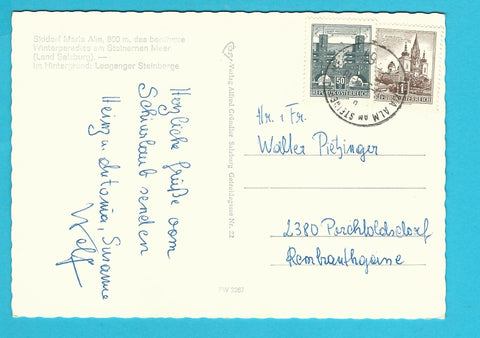 Skidorf Maria Alm, 800 m, das berühmte
Winterparadies am Steinernen Meer
(Land Salzburg). —
Im Hintergrund: Leoganger Steinberge
Herzliche Grüße vom
Schiurlaub senden
Heinz u. Antonia, Susanne
Wolf
Verlag Alfred Gründler Salzburg Getreidegasse Nr. 22
PW 2267
50
REPUBLIK ÖSTERREICH
1
MARIA ALM AM STEINERNEN
Hr. u Fr.
Walter Pietzinger
2380 Perchtoldsdorf
Rembrandtgasse